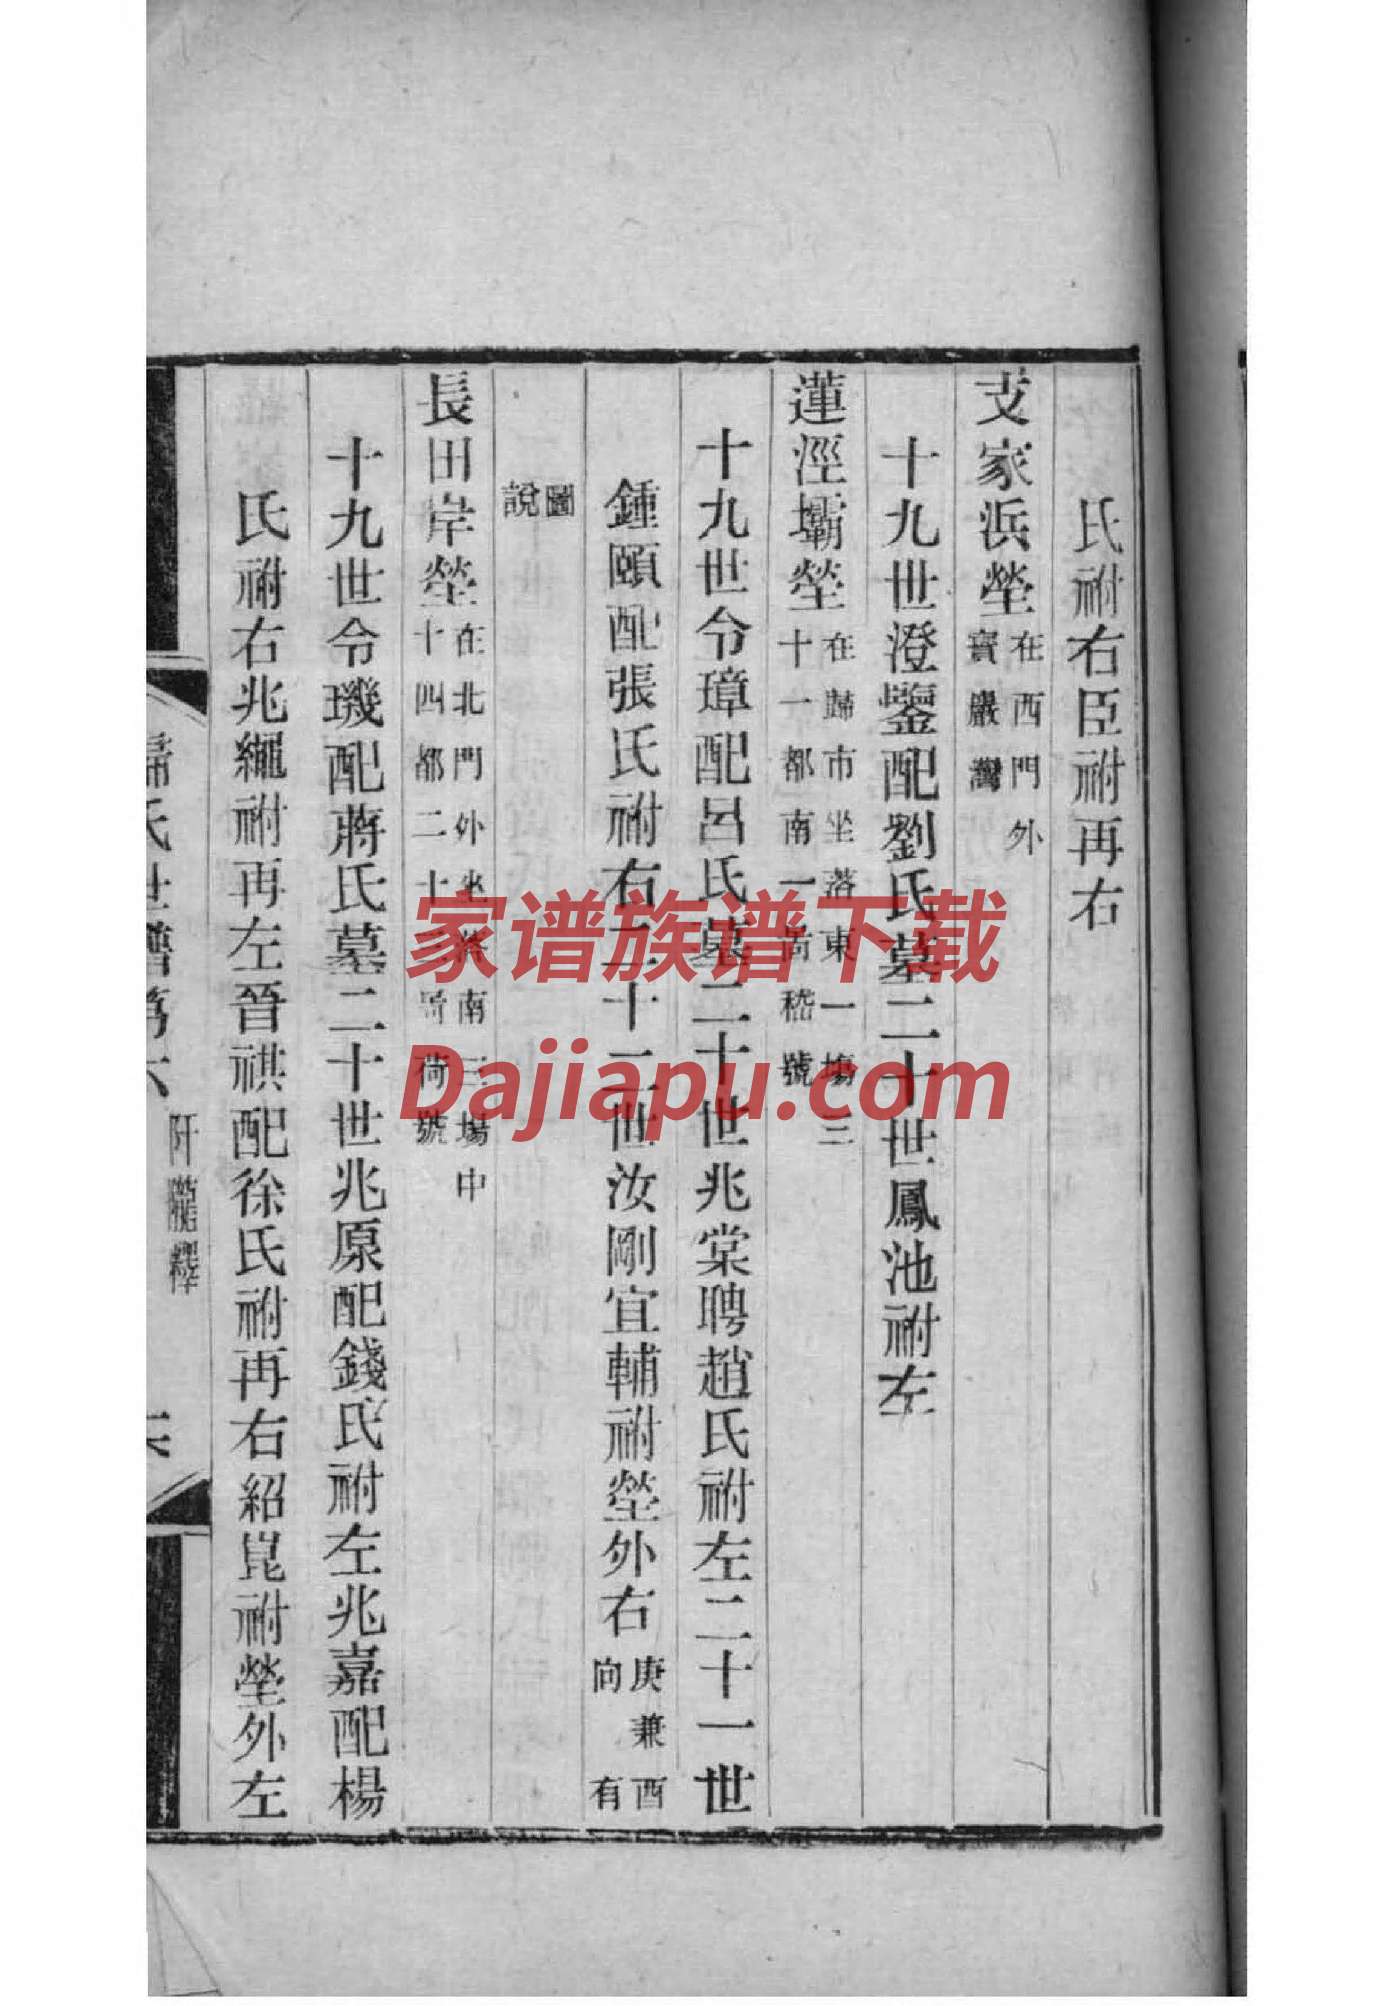 氏祔右臣祔再右
支家浜塋在西門外寶嚴灣
十九世澄鑒配劉氏墓二十世鳳池祔左
蓮涇壩塋在歸市坐落東一塲三十一都南一啚嵇號
十九世令璋配呂氏墓二十世兆棠聘趙氏祔左二十一世
鍾頤配張氏祔右二十二世汝剛宜輔祔塋外右庚兼酉向有
圖說
長田岸塋在北門外坐落南三塲中十四都二十啚荷號
十九世令璣配蔣氏墓二十世兆原配錢氏祔左兆嘉配楊
氏祔右兆繩祔再左晉祺配徐氏祔再右紹崑祔塋外左
氏世譜第六 阡隴釋
家谱族谱下载
Dajiapu.com